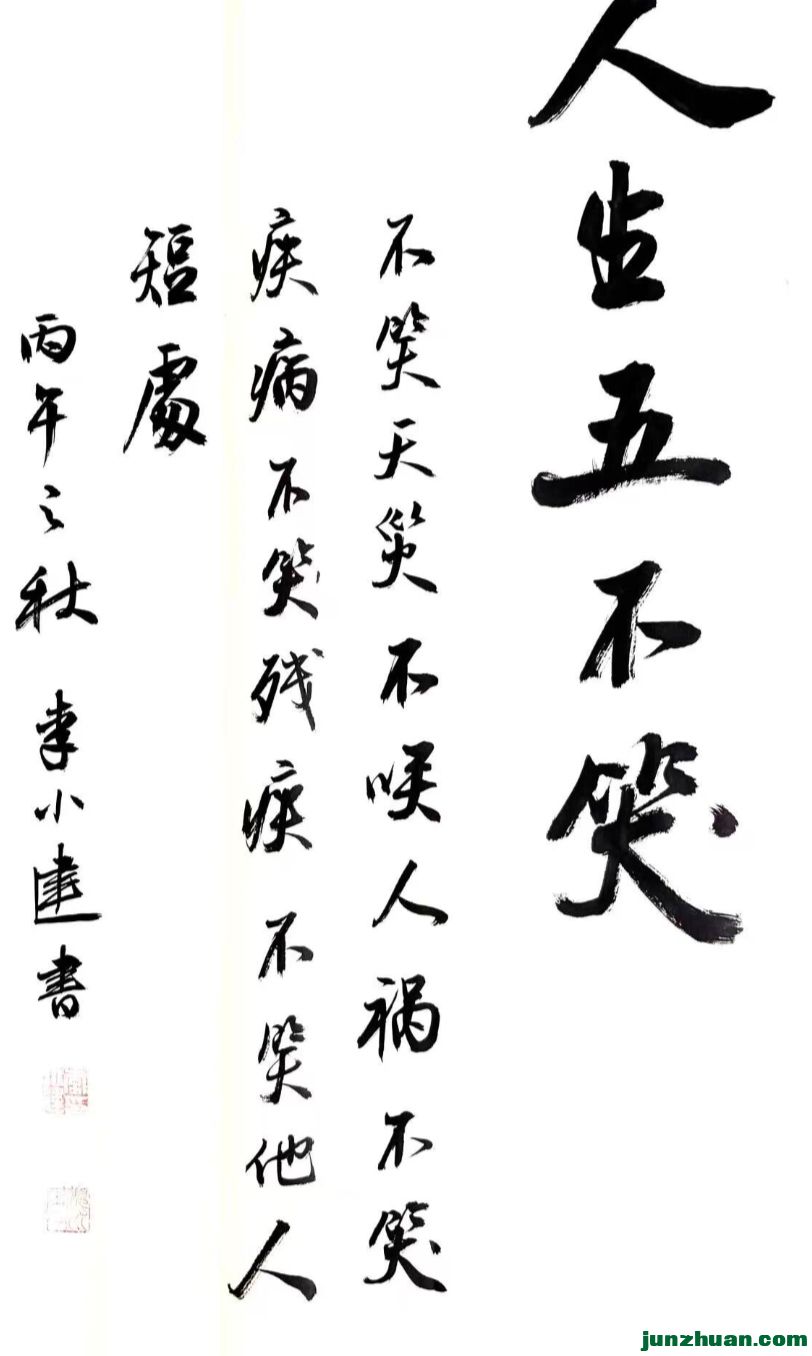 人生五不笑
不笑天災不咲人祸不笑
疾病不笑残疾不笑他人
短處
丙午之秋 李小建書
junzhuan.com